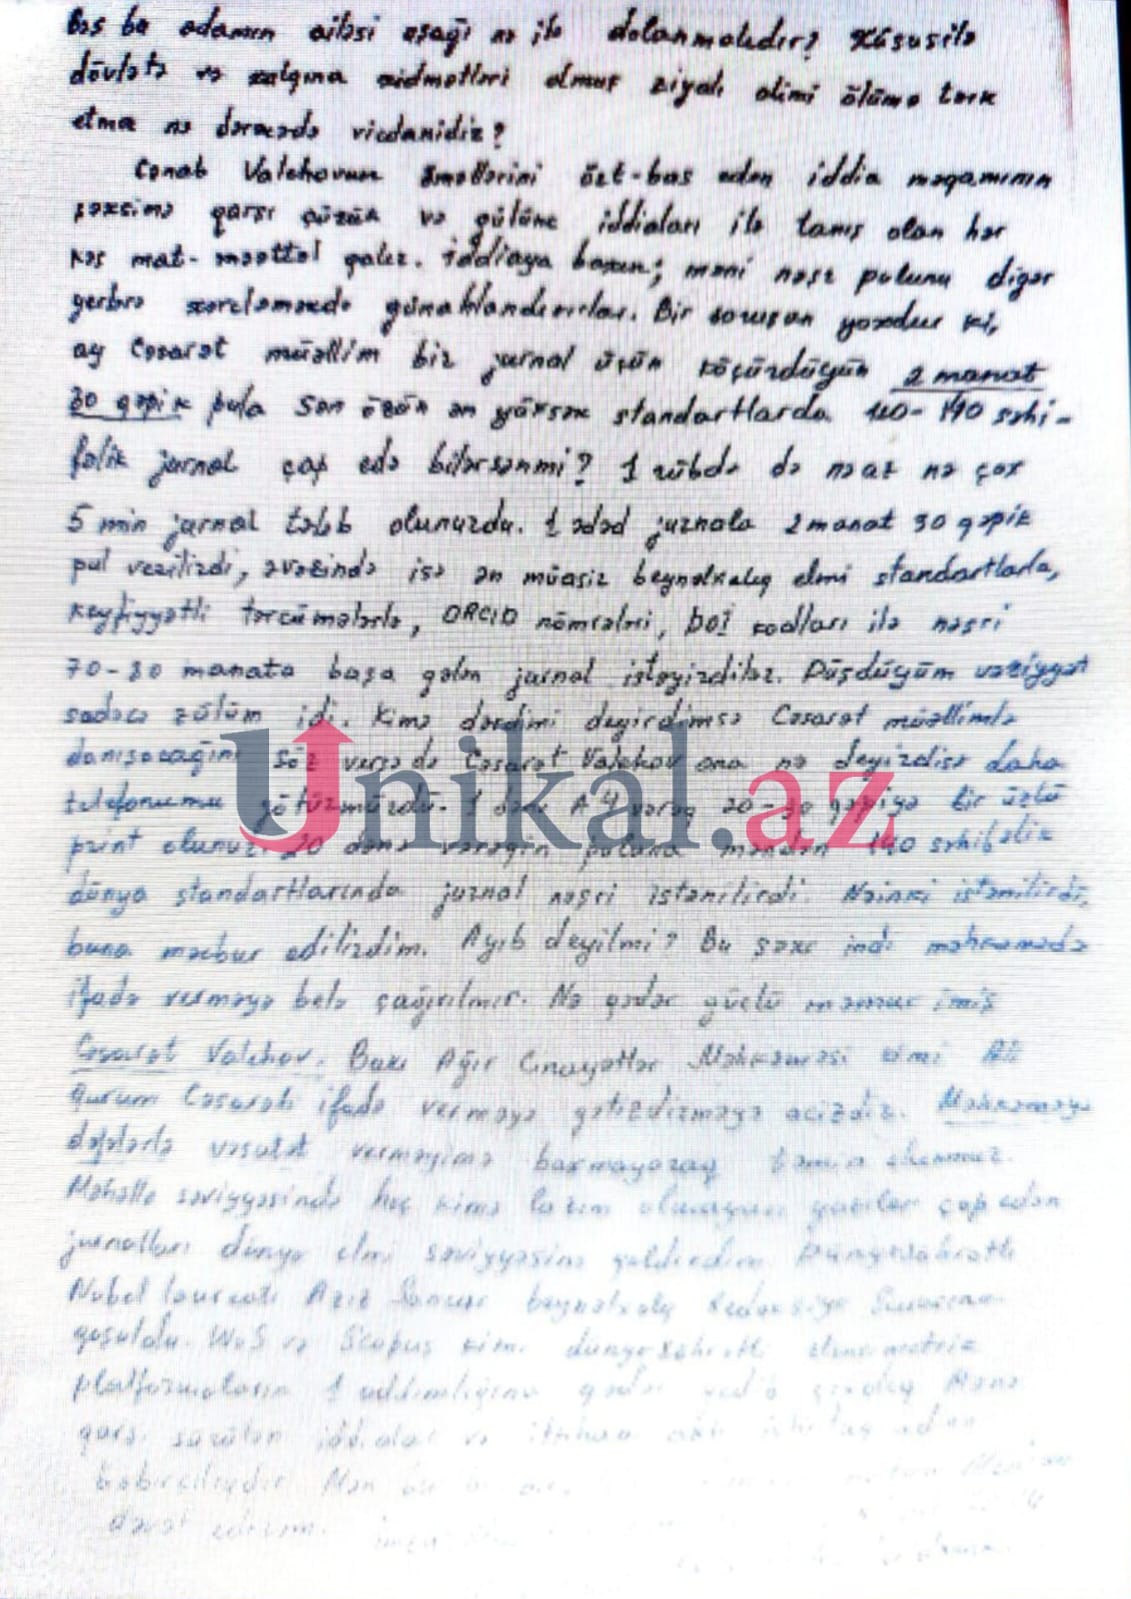 Bəs bu adamın ailəsi aşağı nə ilə dolanmalıdır? Xüsusilə
dövlətə və xalqına xidmətləri olmuş ziyalı alimi ölümə tərk
etmək nə dərəcədə vicdanidir?
Cənab Valehovun əməllərini ört-bas edən iddia məqamının
şəxsimə qarşı çürük və gülünc iddiaları ilə tanış olan hər
kəs mat-məəttəl qalır. İddiaya baxın; məni nəşr pulunu digər
yerlərə xərcləməkdə günahlandırırlar. Bir soruşan yoxdur ki,
ay Cəsarət müəllim bir jurnal üçün köçürdüyün 2 manat
30 qəpik pula Sən özün ən yüksək standartlarda 140-190 səhi-
fəlik jurnal çap edə bilərsənmi? 1 rübdə də nə az nə çox
5 min jurnal təbb olunurdu. 1 ədəd jurnala 2 manat 30 qəpik
pul verilirdi, əvəzində isə ən müasir beynəlxalq elmi standartlarla,
keyfiyyətli tərcümələrlə, ORCID nömrələri, DOİ kodları ilə nəşri
70-80 manata başa gələn jurnal istəyirdilər. Düşdüyüm vəziyyət
sadəcə zülüm idi. Kimə dərdimi deyirdimsə Cəsarət müəllimlə
danışacağını söz versə də Cəsarət Valehov ona nə deyirdisə daha
telefonumu götürmürdü. 1 dənə A4 vərəq 20-30 qəpiyə bir üzlü
print olunur. 20 dənə vərəqin puluna məndən 140 səhifəlik
dünya standartlarında jurnal nəşri istənilirdi. Nəinki istənilirdi,
buna məcbur edilirdim. Ayıb deyilmi? Bu şəxs indi məhkəmədə
ifadə verməyə belə çağırılmır. Nə qədər güclü məmur imiş
Cəsarət Valehov. Bakı Ağır Cinayətlər Məhkəməsi kimi
qurum Cəsarəti ifadə verməyə gətizdirməyə acizdir. Məhkəməyə
dəfələrlə vəsatət verməyimə baxmayaraq təmin olunmur.
Məhəllə səviyyəsində heç kimə lazım olmayan yazılar çap edən
jurnalları dünya elmi səviyyəsinə qaldırdım. Dünyaşöhrətli
Nobel laureatı Aziz Sancar beynəlxalq Redaksiya Şurasına
qoşuldu. WoS və Scopus kimi dünya şöhrətli elmmetrik
platformaların 1 addımlığına qədər Mənə
qarşı iddialar və
Mən
dəvət edirəm.
Unikal.az